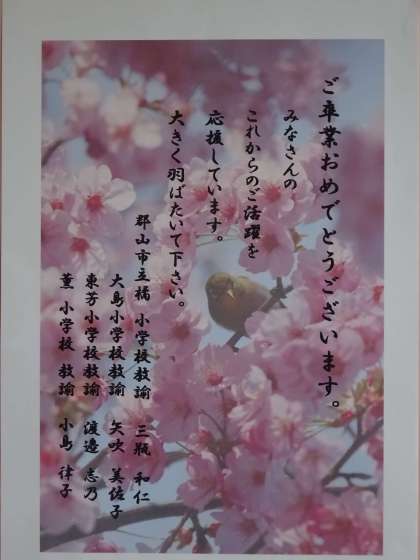 ご卒業おめでとうございます。
みなさんの
これからのご活躍を
応援しています。
大きく羽ばたいて下さい。
郡山市立橘 小学校教諭 三瓶 和仁
大島小学校教諭 矢吹 美佐子
東芳小学校教諭 渡邉 志乃
薫 小学校 教諭 小島 律子